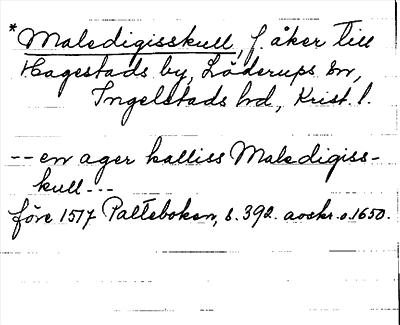 *Maledigisskull, f. åker till
Hagestads by, Löderups sn,
Ingelstads hd, Krist. l.
-- en ager kalliss Maledigiss-
kull---
före 1517 Palteboken, s. 392. avskr. o. 1650.